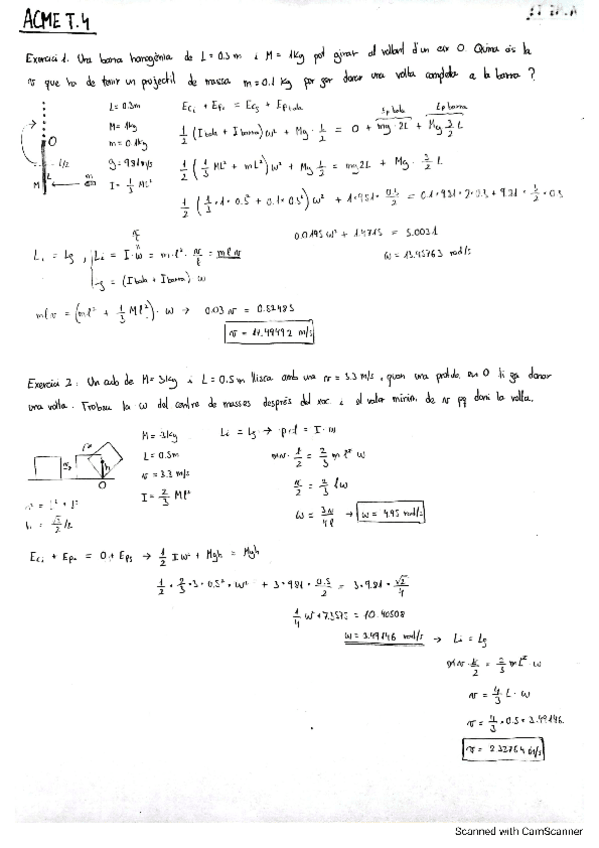 ACME T.4
Exercici 1. Una barra homogènia de L = 0.3 m i M = 1kg pot girar al voltant d'un eix O. Quina és la
v que ha de tenir un projectil de massa m = 0.1 kg per fer donar una volta completa a la barra?
L = 0.3m
M = 1kg
m = 0.1kg
g = 9.81 m/s
I = 1/3 ML²
O
L/2
M
L
m
Eci + Epi = Ecf + Epf
Ep bala
Ep barra
1/2 (I bala + I barra) ω² + Mg · L/2 = 0 + mg · 2L + Mg 3/2 L
1/2 (1/3 ML² + mL²) ω² + Mg L/2 = mg2L + Mg · 3/2 L
ω = 13.45763 rad/s
Li = Lf
Li = I · ω = m · l² · v/l = mlv
Lf = (I bala + I barra) ω
mlv = (ml² + 1/3 Ml²) · ω → 0.03 v = 0.52485
v = 17.49492 m/s
Exercici 2: Un cub de M = 3kg i L = 0.5m llisca amb una v = 3.3 m/s, quan una protub. en O li fa donar
una volta. Trobau la ω del centre de masses després del xoc i el valor mínim de v pq doni la volta.
O
h
M = 3kg
L = 0.5m
v = 3.3 m/s
I = 2/3 Ml²
Li = Lf → p·d = I · ω
mv · l/2 = 2/3 m l² ω
v/2 = 2/3 l ω
ω = 3v/4l → ω = 4.95 rad/s
Eci + Epi = 0 + Epf → 1/2 Iω² + Mgh = Mgh
1/2 · 2/3 · 3 · 0.5² · ω² + 3 · 9.81 · 0.5/2 = 3 · 9.81 · √2/4
1/4 ω + 7.3575 = 10.40508
ω = 3.49146 rad/s → Li = Lf
mv · l/2 = 2/3 ml² · ω
v = 4/3 L · ω
v = 4/3 · 0.5 · 3.49146
v = 2.32764 m/s
Scanned with CamScanner